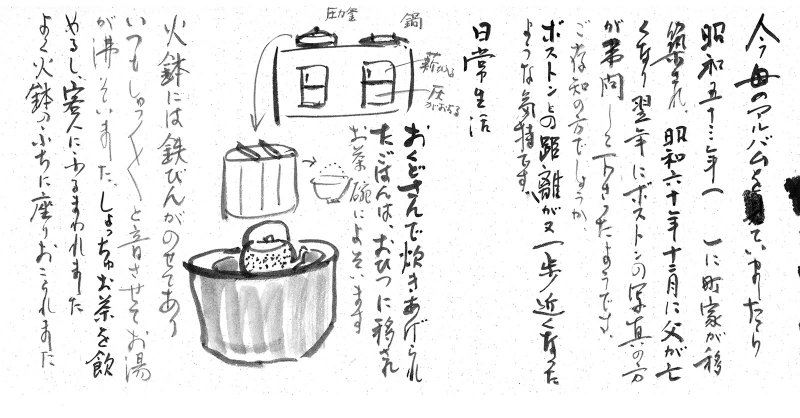 今母のアルバムを見ていましたら
昭和五十三年（　）に町家が移
築され、昭和六十年十二月に父が亡
くなり翌年にボストンの写真の方
が弔問して下さったようです。
ご存知の方でしょうか。
ボストンとの距離が又一歩近くなった
ような気持です。
日常生活
鍋
圧力釜
薪
灰
がおちる
おくどさんで炊きあげられ
たごはんは、おひつに移され
お茶碗によそいます
火鉢には鉄びんがのせてあり
いつもしゅんしゅんと音させてお湯
が沸いていました。しょっちゅうお茶を飲
むし、客人にふるまわれました
よく火鉢のふちに座りおこられました